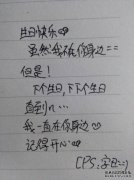 生日快乐♡
虽然我不在你身边==
但是！
下个生日,下下个生日
直到n…
我一直在你身边♡
记得开心
(PS:字丑